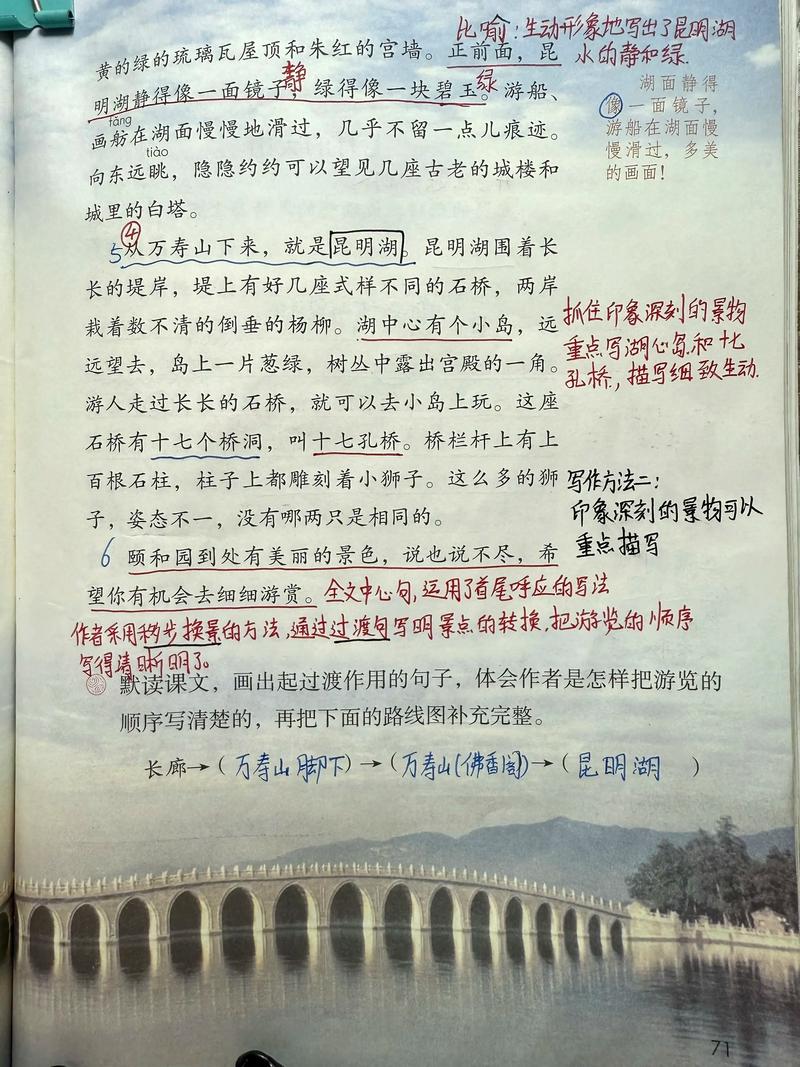 比喻：生动形象地写出了昆明湖
水的静和绿.
黄的绿的琉璃瓦屋顶和朱红的宫墙。正前面，昆
静
绿
明湖静得像一面镜子，绿得像一块碧玉。游船、
fǎng
画舫在湖面慢慢地滑过，几乎不留一点儿痕迹。
tiào
向东远眺，隐隐约约可以望见几座古老的城楼和
城里的白塔。
湖面静得
像一面镜子，
游船在湖面慢
慢滑过，多美
的画面！
④
5从万寿山下来，就是昆明湖。昆明湖围着长
长的堤岸，堤上有好几座式样不同的石桥，两岸
栽着数不清的倒垂的杨柳。湖中心有个小岛，远
远望去，岛上一片葱绿，树丛中露出宫殿的一角。
游人走过长长的石桥，就可以去小岛上玩。这座
石桥有十七个桥洞，叫十七孔桥。桥栏杆上有上
百根石柱，柱子上都雕刻着小狮子。这么多的狮
子，姿态不一，没有哪两只是相同的。
抓住印象深刻的景物
重点写湖心岛和十七
孔桥，描写细致生动.
写作方法二：
印象深刻的景物可以
重点描写
6 颐和园到处有美丽的景色，说也说不尽，希
望你有机会去细细游赏。全文中心句，运用了首尾呼应的写法
作者采用移步换景的方法，通过过渡句写明景点的转换，把游览的顺序
写得清晰明了。
默读课文，画出起过渡作用的句子，体会作者是怎样把游览的
顺序写清楚的，再把下面的路线图补充完整。
长廊→（万寿山脚下）→（万寿山(佛香阁)）→（昆明湖）
71